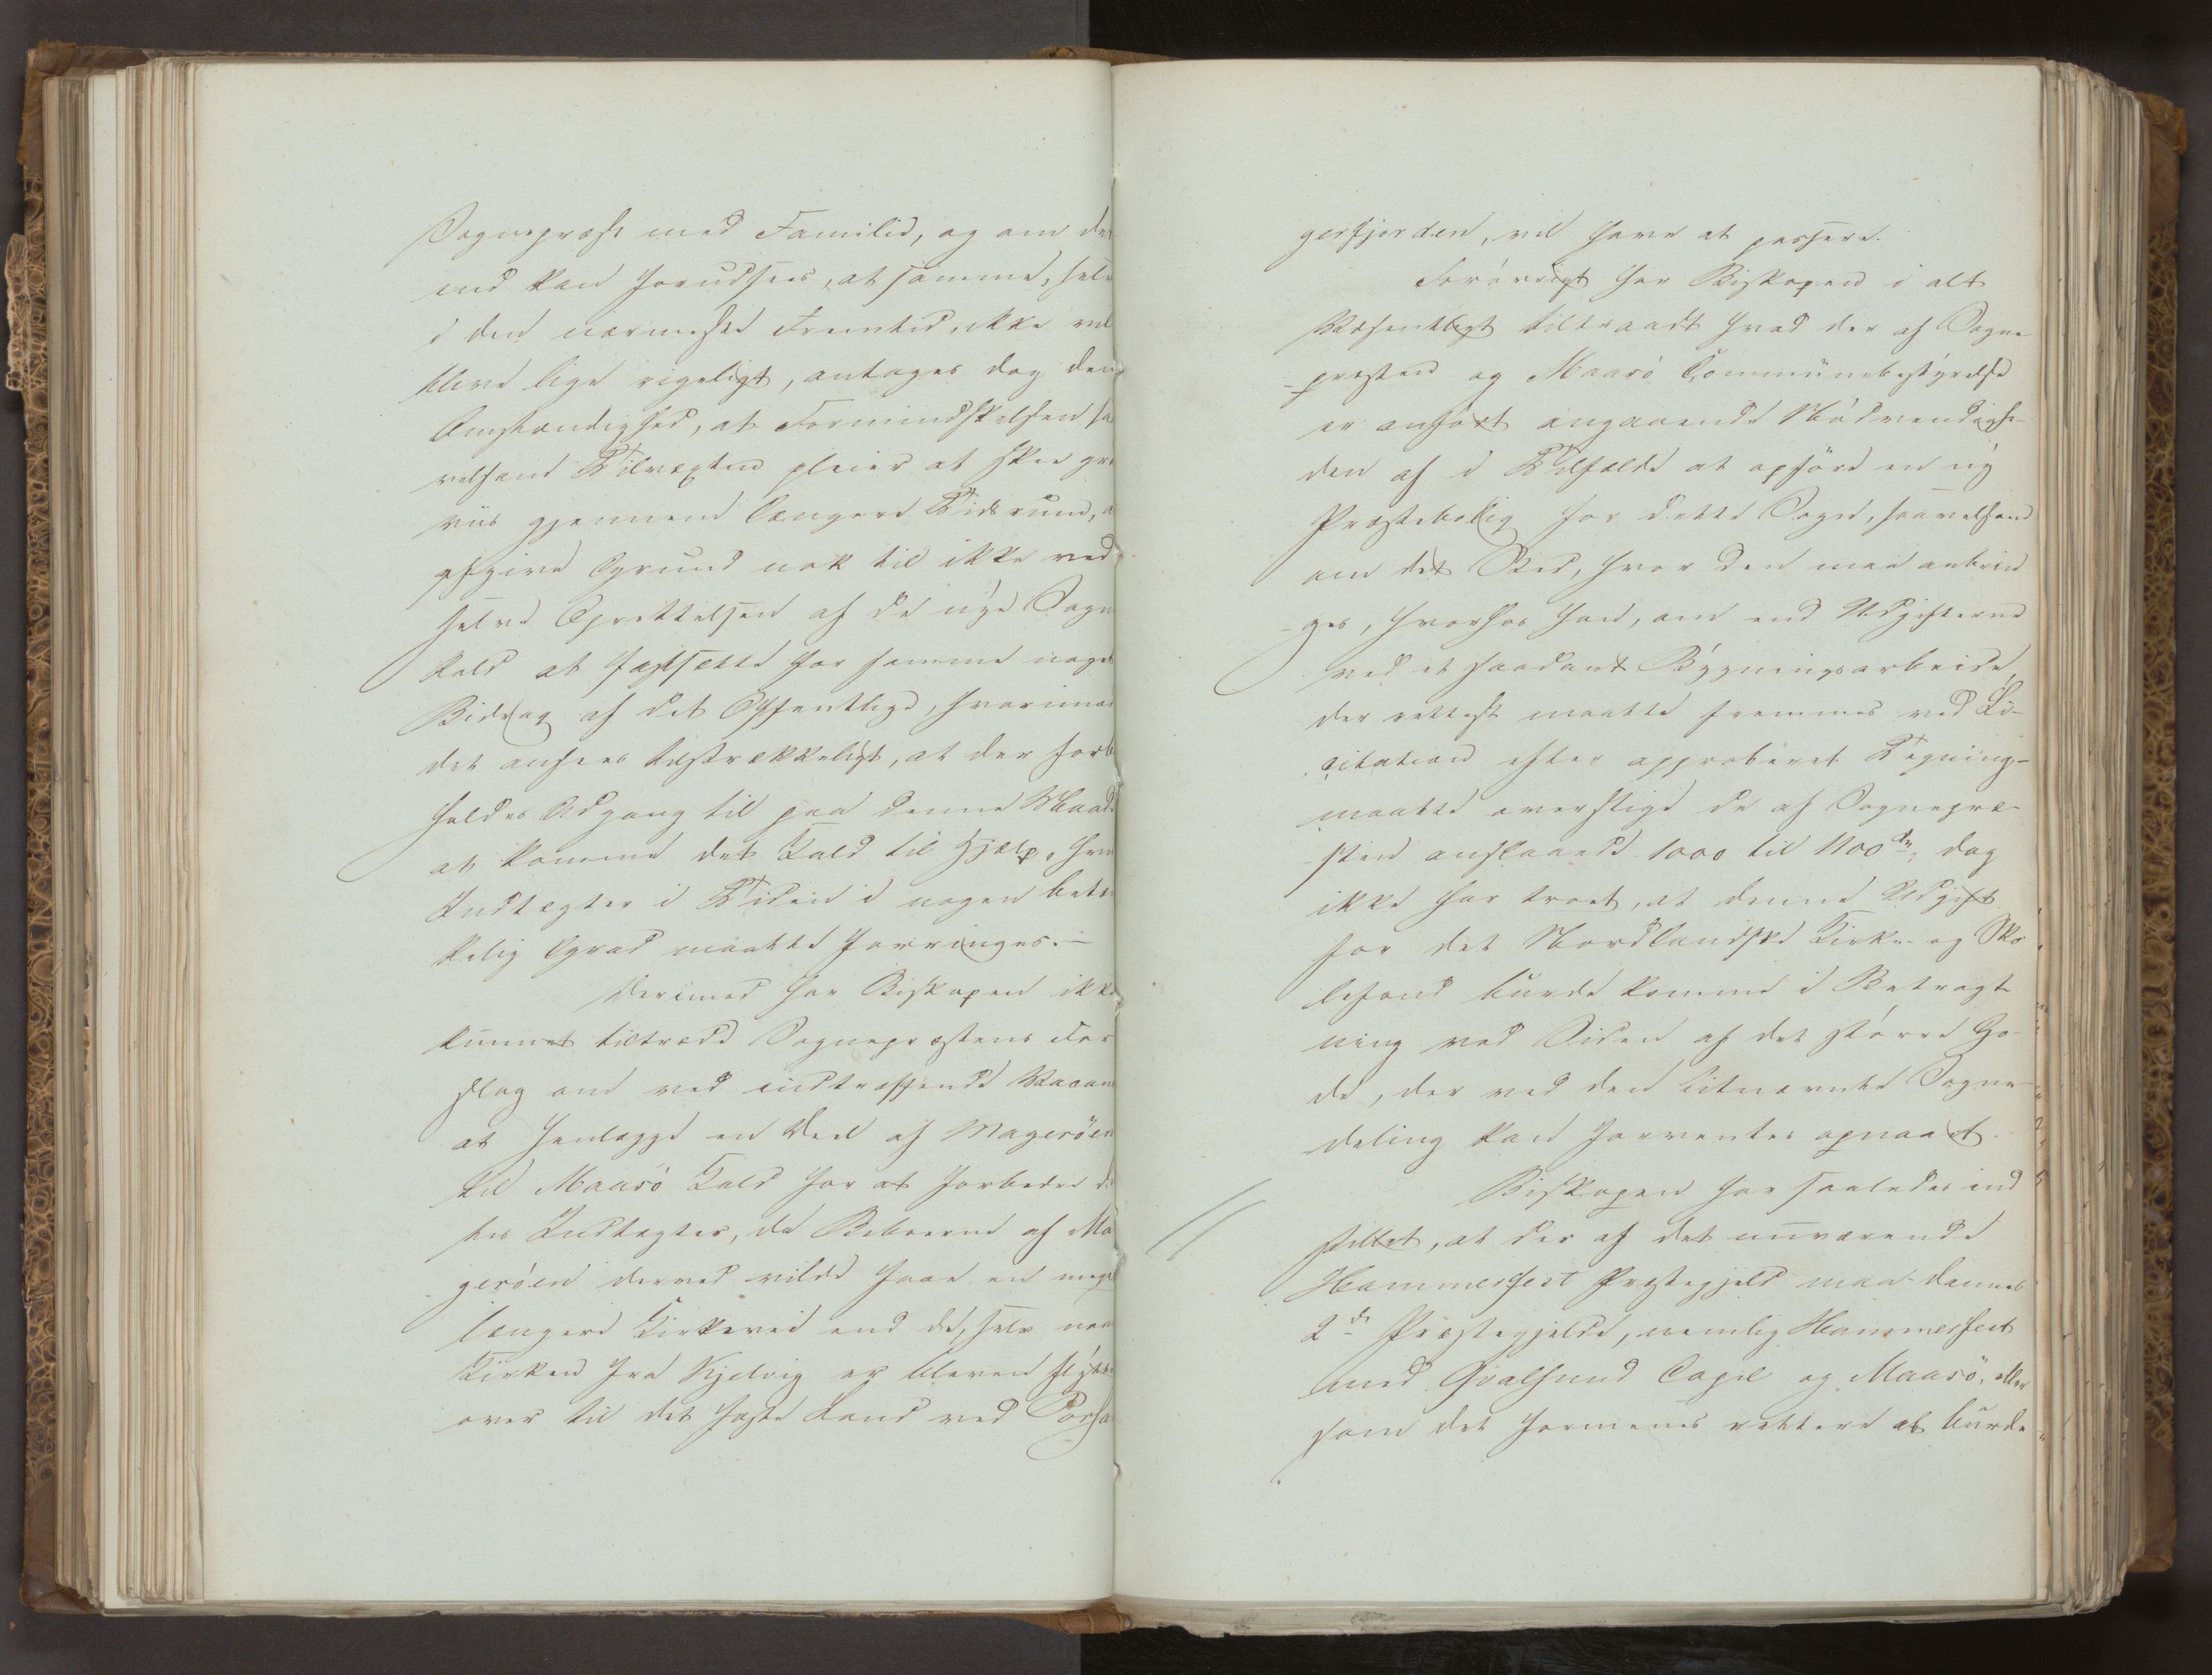 Sognepræst med Familie, og om det
end kan forudsees, at samme, selv
i den nærmeste Fremtid, ikke vil
blive lige rigeligt, antages dog den
Omstændighed, at Formindskelsen saa
velsom Tilvæxten pleier at skee grad
viis gjennem længere Tidsrum, at
afgive Grund nok til ikke ved
selve Oprettelsen af de nye Sogne
kald at fastsætte for samme noget
Bidrag af det Offentlige, hvorimod
det ansees tilstrækkeligt, at der forbe
holdes Adgang til paa denne Maade
at komme det Kald til Hjælp, hvis
Indtægter i Tiden i nogen betæn
kelig Grad maatte forringes.-
Derimod har Biskopen ikke
kunnet tiltræde Sognepræstens For
slag om ved indtræffende Vacance
at henlægge en Deel af Magerøen
til Maasø Kald for at forbedre det
tes Indtægter, da Beboerne af Ma
gerøen derved vilde faae en meget
længere Kirkevei end de, selv naar
Kirken fra Kjelvig er bleven flyttet
over til det faste Land ved Porsan
gerfjorden, vil have at passere.
Forøvrigt har Biskopen i alt
Væsentligt tiltraadt hvad der af Sogne
-præsten og Maasø Communebestyrelse
er anført angaaende Nødvendighe-
den af i Tilfælde at opføre en ny
Præstebolig for dette Sogn, saavelsom
om det Sted, hvor den maa anbrin
-ges, hvorhos han, om end Udgifterne
ved et saadant Bygningsarbeide,
der rettest maatte fremmes ved Li-
citation efter approberet Tegning-
maatte overstige de af Sognepræ-
-sten anslaaede 1000 til 1100 dlr, dog
ikke har troet, at denne Udgift
for det Nordlandske Kirke- og Sko
lefond burde komme i Betragt
ning ved Siden af det større Go-
de, der ved den bemeldte Sogne-
deling kan forventes opnaaet.
Biskopen har saaledes ind
stillet, at der af det nuværende
Hammerfest Præstegjeld maa dannes
2de Præstegjelde, nemlig Hammerfest
med Qvalsund Capel og Maasø, eller
som det formenes rettere at burde